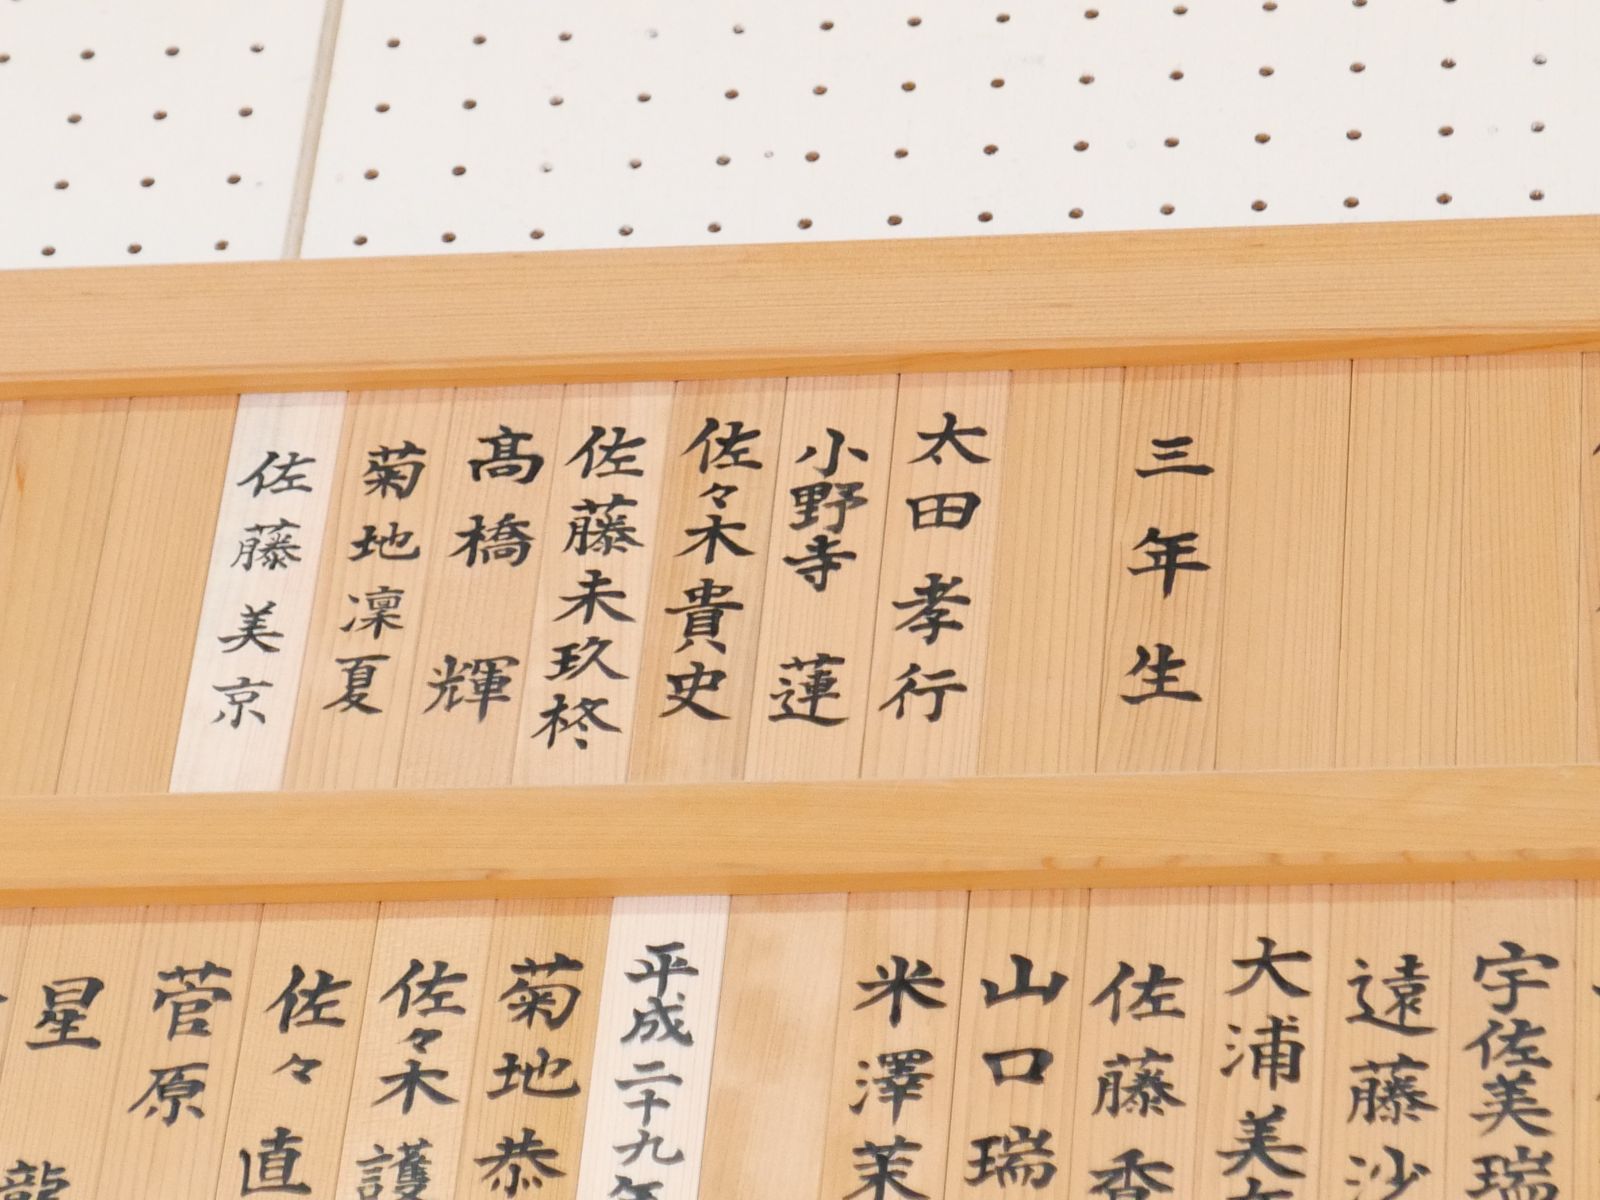 三年生
太田孝行
小野寺蓮
佐々木貴史
佐藤未玖柊
髙橋輝
菊地凜夏
佐藤美京
宇佐美瑞
遠藤沙
大浦美
佐藤香
山口瑞
米澤茉
平成二十九年
菊地恭
佐々木護
佐々直
菅原
星龍